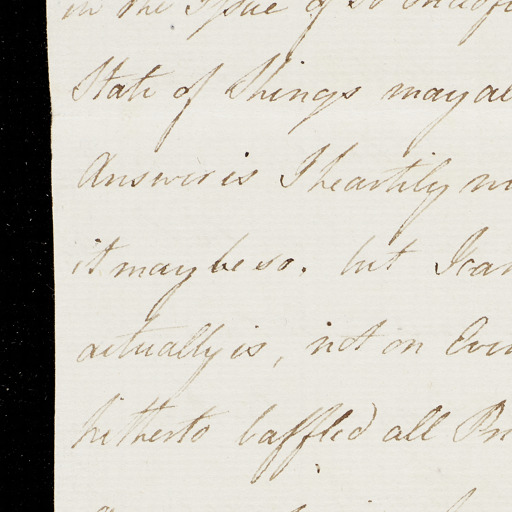 in the Issue of so
State of Things may
Answer is I heartily
it may be so. but I
actually is, not on
hitherto baffled all